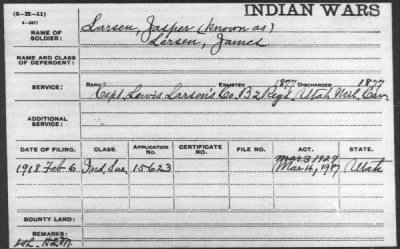 (3-XX-11)
INDIAN WARS
NAME OF SOLDIER:
Larsen, Jasper (known as)
Larsen, James
NAME AND CLASS OF DEPENDENT:
SERVICE:
RANK ENLISTED 1877 DISCHARGED 1877
Capt. Lewis Larson's Co. B 2 Regt. Utah Mil. Cav
ADDITIONAL SERVICE:
DATE OF FILING. CLASS. APPLICATION NO. CERTIFICATE NO. FILE NO. ACT. STATE.
Mar 3 1927
1918 Feb 6 Ind. Sur. 15623 Mar 4, 1917 Utah
BOUNTY LAND:
REMARKS: